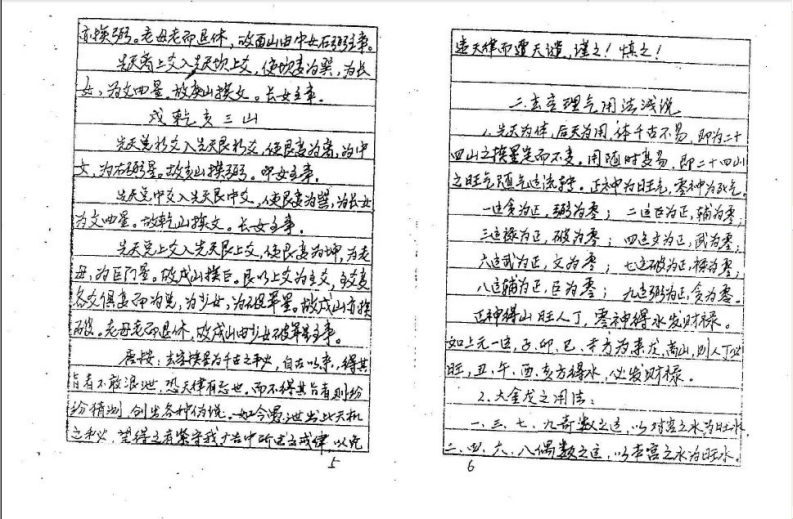 亦换弼。老母老而退休，故酉山由中女右弼主事。
先天离上爻入先天坎上爻，使坎变为巽，为长
女，为文曲星，故庚山换文。长女主事。
戌乾亥三山
先天兑初爻入先天艮初爻，使艮变为离，为中
女，为右弼星。故亥山换弼。中女主事。
先天兑中爻入先天艮中爻，使艮变为巽，为长女
为文曲星。故乾山换文。长女主事。
先天兑上爻入先天艮上爻，使艮变为坤，为老
母，为巨门星。故戌山换巨。艮以上爻为主爻，主爻变
各爻俱变而为兑，为少女，为破军星。故戌山亦换
破。老母老而退休，故戌山由少女破军星主事。
按：玄空换星为千古之秘，自古以来，得其
旨者不敢泄，恐天律有忌也。而不得其旨者则纷
纷猜测，创出各种伪说。如今泄出此天机
之秘，望得之者紧守我中所之戒律，以免
5
虚天律而遭天谴，谨之！慎之！
二、玄空理气用法浅说
1.先天为体，后天为用，体千古不易，即为二十
四山之换星定而不变。用随时变易，即二十四山
之旺气随气运流转。正神为旺气，零神为死气。
一运贪为正，弼为零；二运巨为正，辅为零；
三运禄为正，破为零；四运文为正，武为零；
六运武为正，文为零；七运破为正，禄为零；
八运辅为正，巨为零；九运弼为正，贪为零。
正神得山旺人丁，零神得水发财禄。
如上元一运，子、卯、巳、方为来龙高山，则人丁必
旺，丑、午、酉、亥方得水，必发财禄。
2.大金龙之用法：
一、三、七、九奇数之运，以对宫之水为旺水，
二、四、六、八偶数之运，以本宫之水为旺水。
6